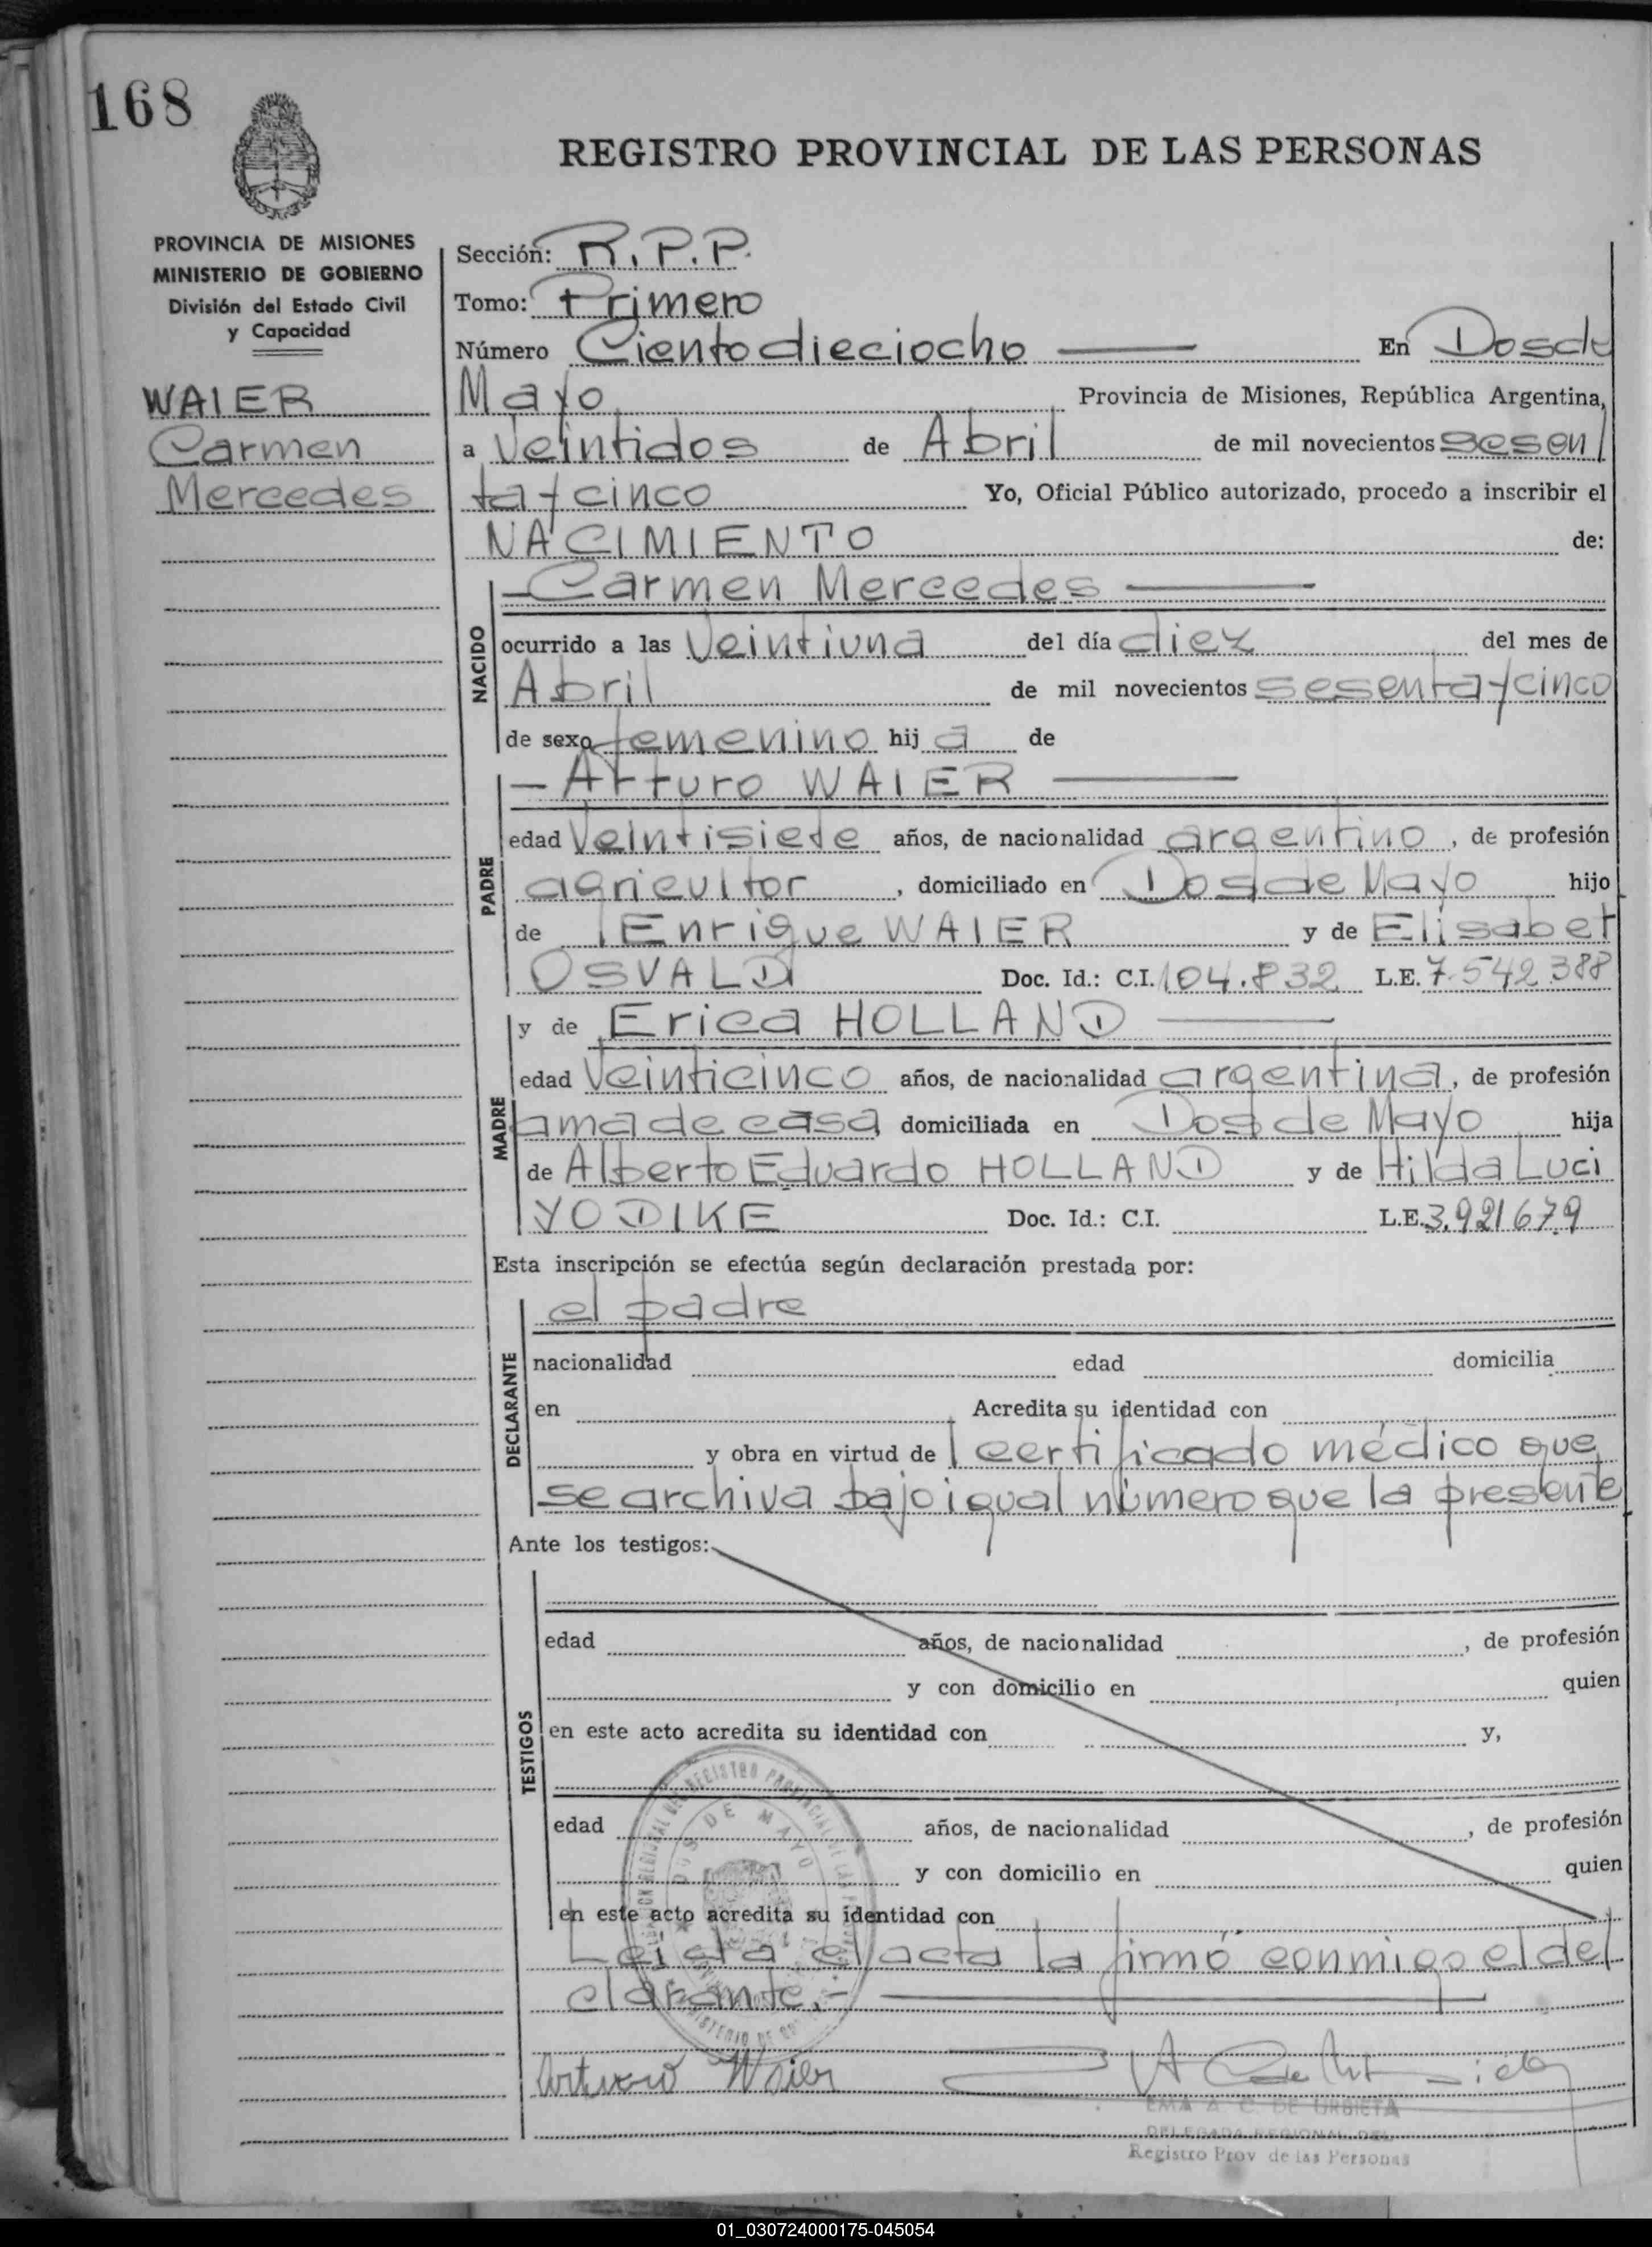 168
REGISTRO PROVINCIAL DE LAS PERSONAS
PROVINCIA DE MISIONES
MINISTERIO DE GOBIERNO
División del Estado Civil
y Capacidad
WAIER
Carmen
Mercedes
Sección: R.P.P.
Tomo: Primero
Número Ciento dieciocho En Dos de
Mayo Provincia de Misiones, República Argentina,
a Veintidos de Abril de mil novecientos sesen
ta y cinco Yo, Oficial Público autorizado, procedo a inscribir el
NACIMIENTO de:
NACIDO
— Carmen Mercedes —
ocurrido a las Veintiuna del día diez del mes de
Abril de mil novecientos sesenta y cinco
de sexo femenino hij a de
PADRE
— Arturo WAIER —
edad Veintisiete años, de nacionalidad argentino, de profesión
agricultor, domiciliado en Dos de Mayo hijo
de Enrique WAIER y de Elisabet
OSVALD Doc. Id.: C.I. 104.832 L.E. 7.542.388
MADRE
y de Erica HOLLAND —
edad Veinticinco años, de nacionalidad argentina, de profesión
ama de casa domiciliada en Dos de Mayo hija
de Alberto Eduardo HOLLAND y de Hilda Luci
YODIKE Doc. Id.: C.I. L.E. 3.921679
Esta inscripción se efectúa según declaración prestada por:
DECLARANTE
el padre
nacionalidad edad domicilia
en Acredita su identidad con
y obra en virtud de certificado médico que
se archiva bajo igual número que la presente
Ante los testigos:
TESTIGOS
edad años, de nacionalidad , de profesión
y con domicilio en quien
en este acto acredita su identidad con y,
edad años, de nacionalidad , de profesión
y con domicilio en quien
en este acto acredita su identidad con
Leida el acta la firmó conmigo el de
clarante.-
DOS DE MAYO
Arturo Waier
EMA A. C. DE URBIETA
DELEGADA REGIONAL DEL
Registro Prov de las Personas
01_030724000175-045054